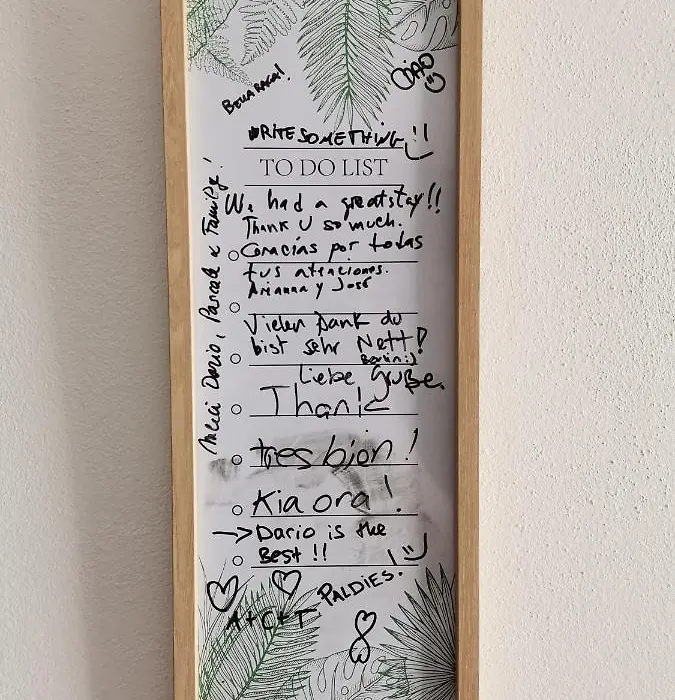 CIAO
BELLA RAGA!
WRITE SOMETHING !!
TO DO LIST
We had a great stay!!
Thank U so much.
Gracias por todas
tus atenciones.
Arianna y José
Vielen Dank du
bist sehr Nett!
Liebe Grüße.
Thank
tres bion!
Kia ora!
→ Dario is the
Best !!
PALDIES.
A+C+T
Dario, Pascale & Family!